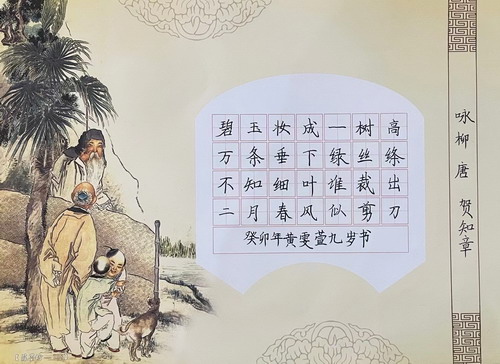 碧玉妆成一树高
万条垂下绿丝绦
不知细叶谁裁出
二月春风似剪刀
癸卯年黄雯萱九岁书
咏柳 唐 贺知章